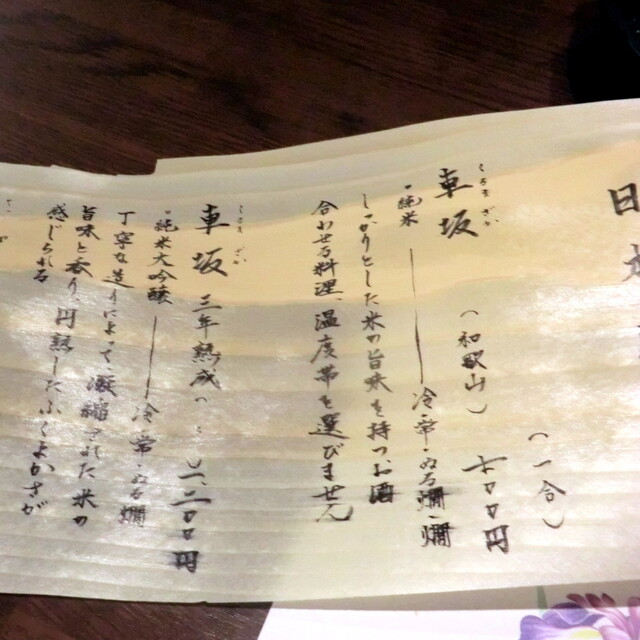 日本
（一合）
くるまざか
車坂（和歌山）七〇〇円
・純米 ― 冷・常・ぬる燗・燗
しっかりとした米の旨味を持つお酒
合わせる料理、温度帯を選びません
くるまざか
車坂 三年熟成（ ）一、二〇〇円
・純米大吟醸 ― 冷・常・ぬる燗
丁寧な造りによって凝縮された米の
旨味と香り、円熟したふくよかさが
感じられる